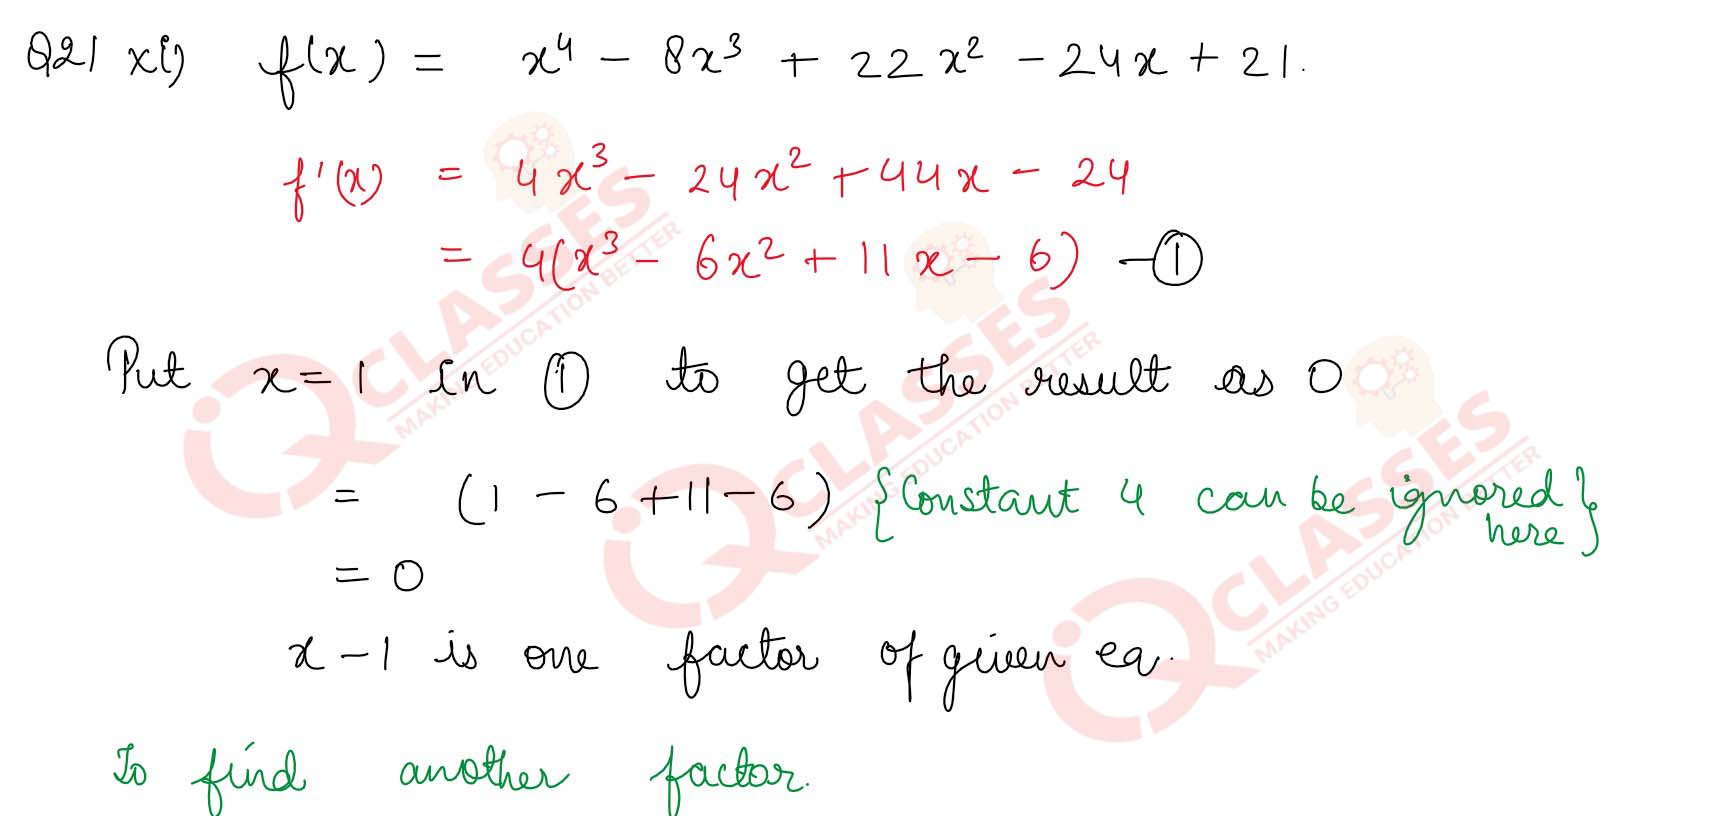 Q21 xi) f(x) = x⁴ - 8x³ + 22x² - 24x + 21.
f'(x) = 4x³ - 24x² + 44x - 24
= 4(x³ - 6x² + 11x - 6) - ①
Put x = 1 in ① to get the result as 0
= (1 - 6 + 11 - 6) {Constant 4 can be ignored here}
= 0
x - 1 is one factor of given eq.
To find another factor.
iQ CLASSES
MAKING EDUCATION BETTER
iQ CLASSES
MAKING EDUCATION BETTER
iQ CLASSES
MAKING EDUCATION BETTER